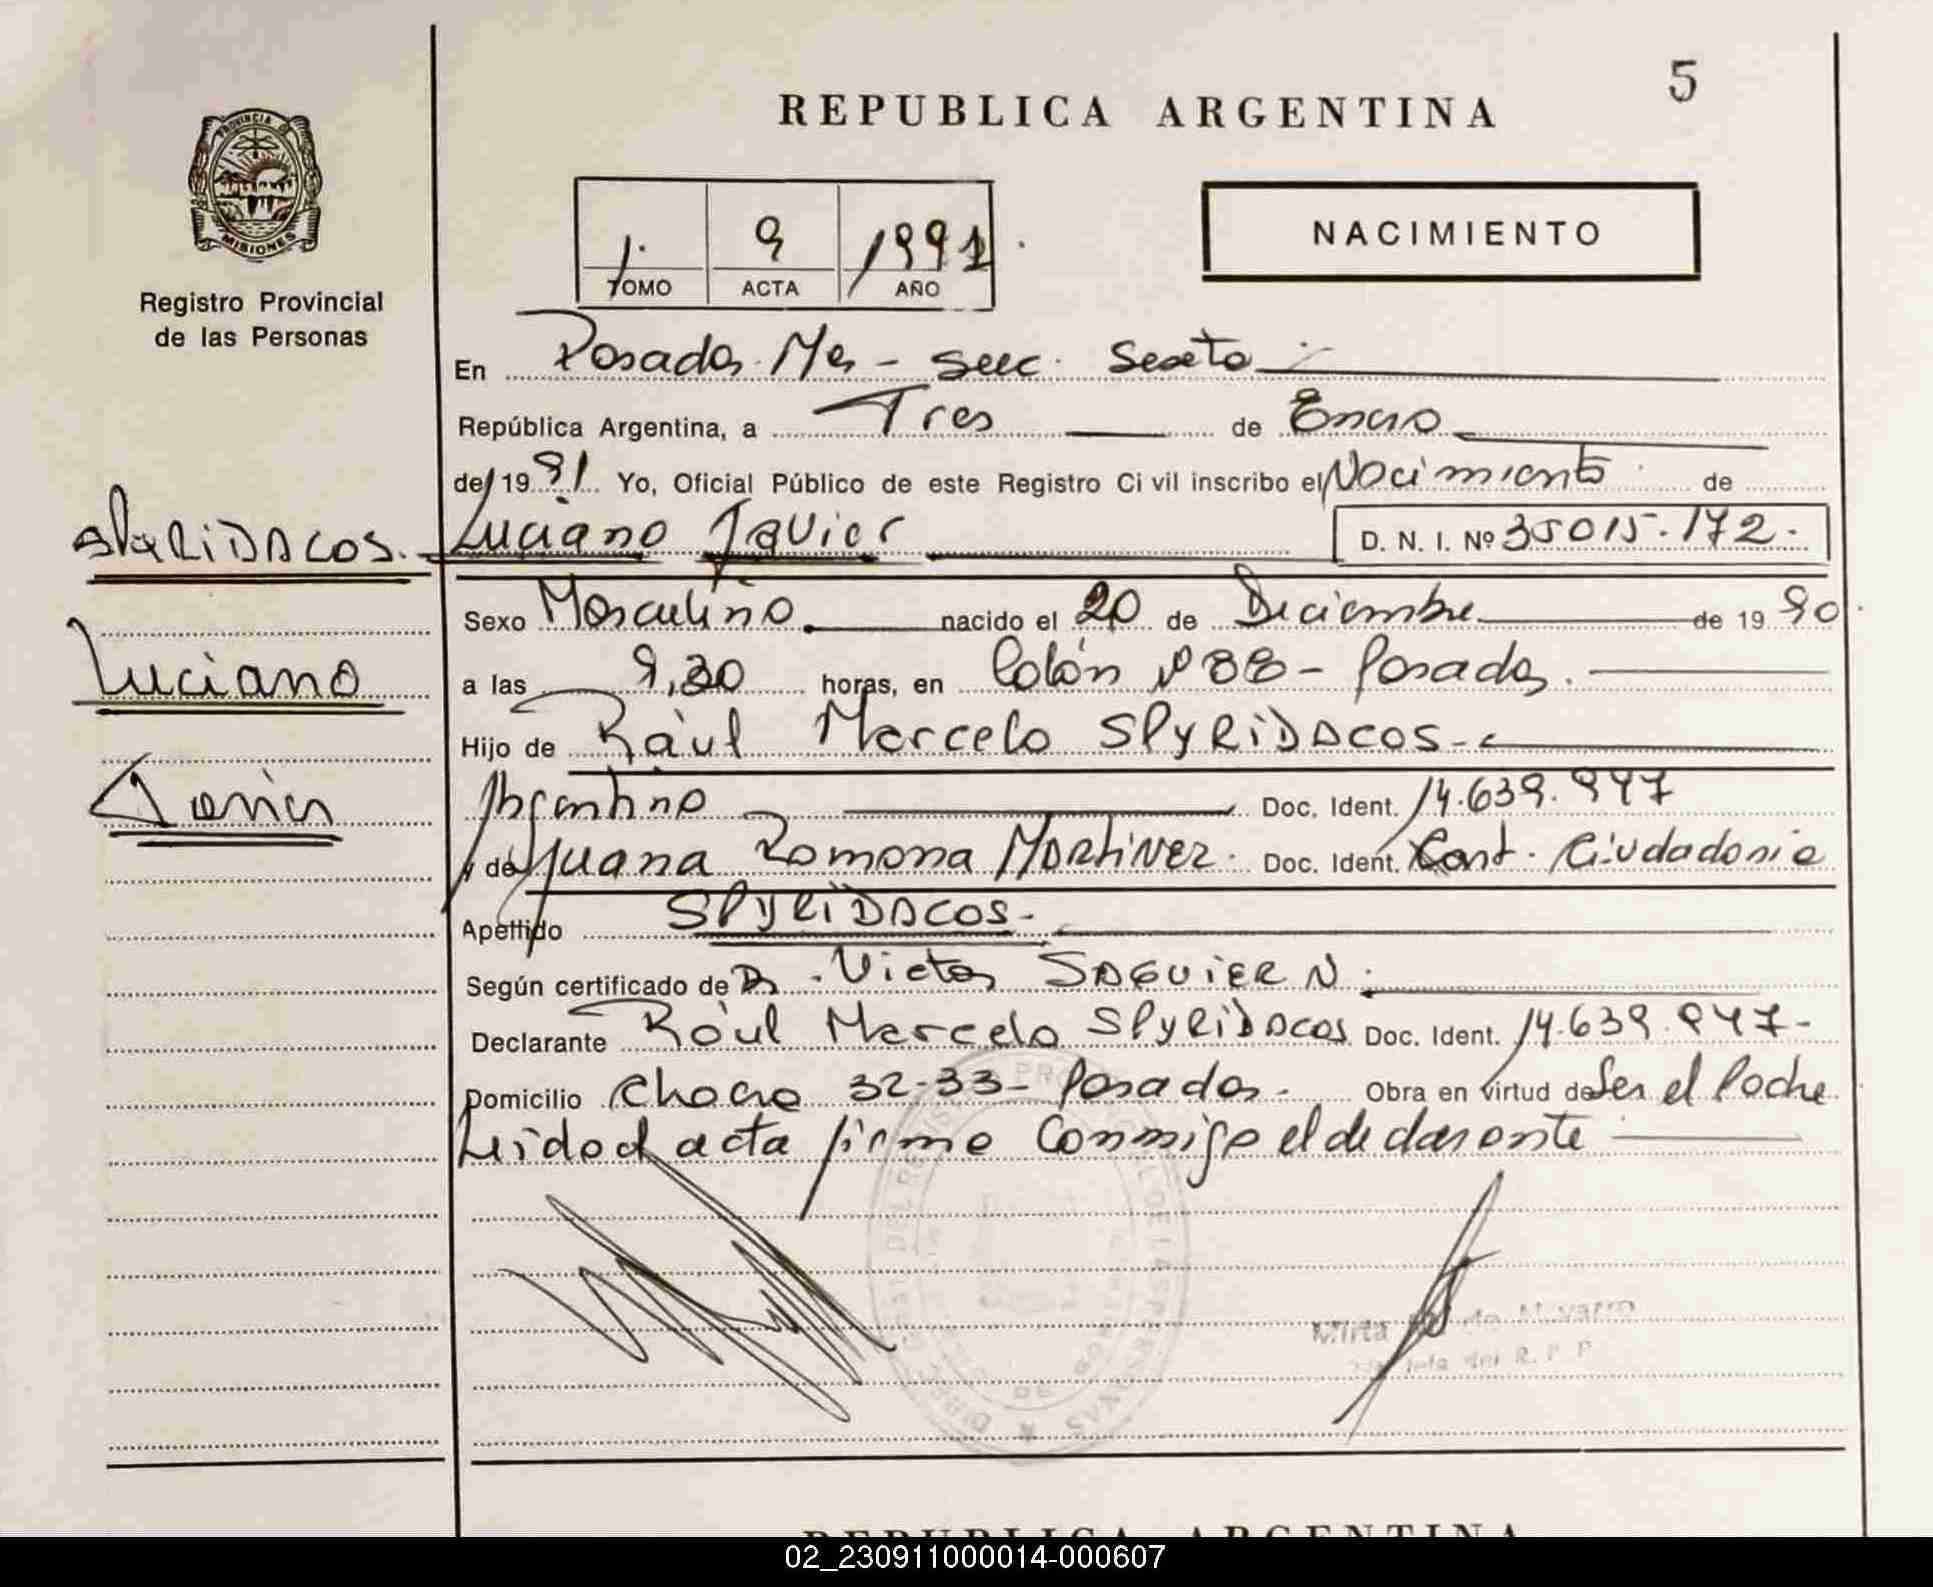 5
REPUBLICA ARGENTINA
PROVINCIA DE
MISIONES
Registro Provincial
de las Personas
1. 9 1991
TOMO ACTA AÑO
NACIMIENTO
En Posadas Mes - secc. Sexta
República Argentina, a Tres de Enero
de 1991 Yo, Oficial Público de este Registro Civil inscribo el Nacimiento de
SPYRIDACOS. Luciano Javier D. N. I. Nº 35015.172.
Sexo Masculino nacido el 20 de Diciembre de 1990
Luciano
a las 9,30 horas, en Colón Nº 88 - Posadas.
Hijo de Raúl Marcelo SPYRIDACOS.-
Javier
Argentino Doc. Ident. 14.639.947
y de Juana Ramona Martinez. Doc. Ident. Cart. Ciudadania
Apellido SPYRIDACOS.
Según certificado de Dr. Victor SAGUIER N.
Declarante Raúl Marcelo SPYRIDACOS Doc. Ident. 14.639.947-
Domicilio Chacra 32-33- Posadas. Obra en virtud de Ser el Padre
Leida el acta firma Conmigo el declarante
Mirta de
del R. P. P.
REPUBLICA ARGENTINA
02_230911000014-000607